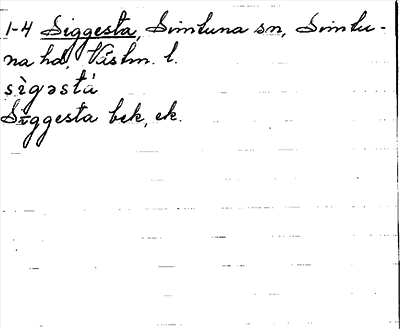 1-4 Siggesta, Simtuna sn, Simtu-
na hd, Västm. l.
sìgəstá
Siggesta bek, ek.